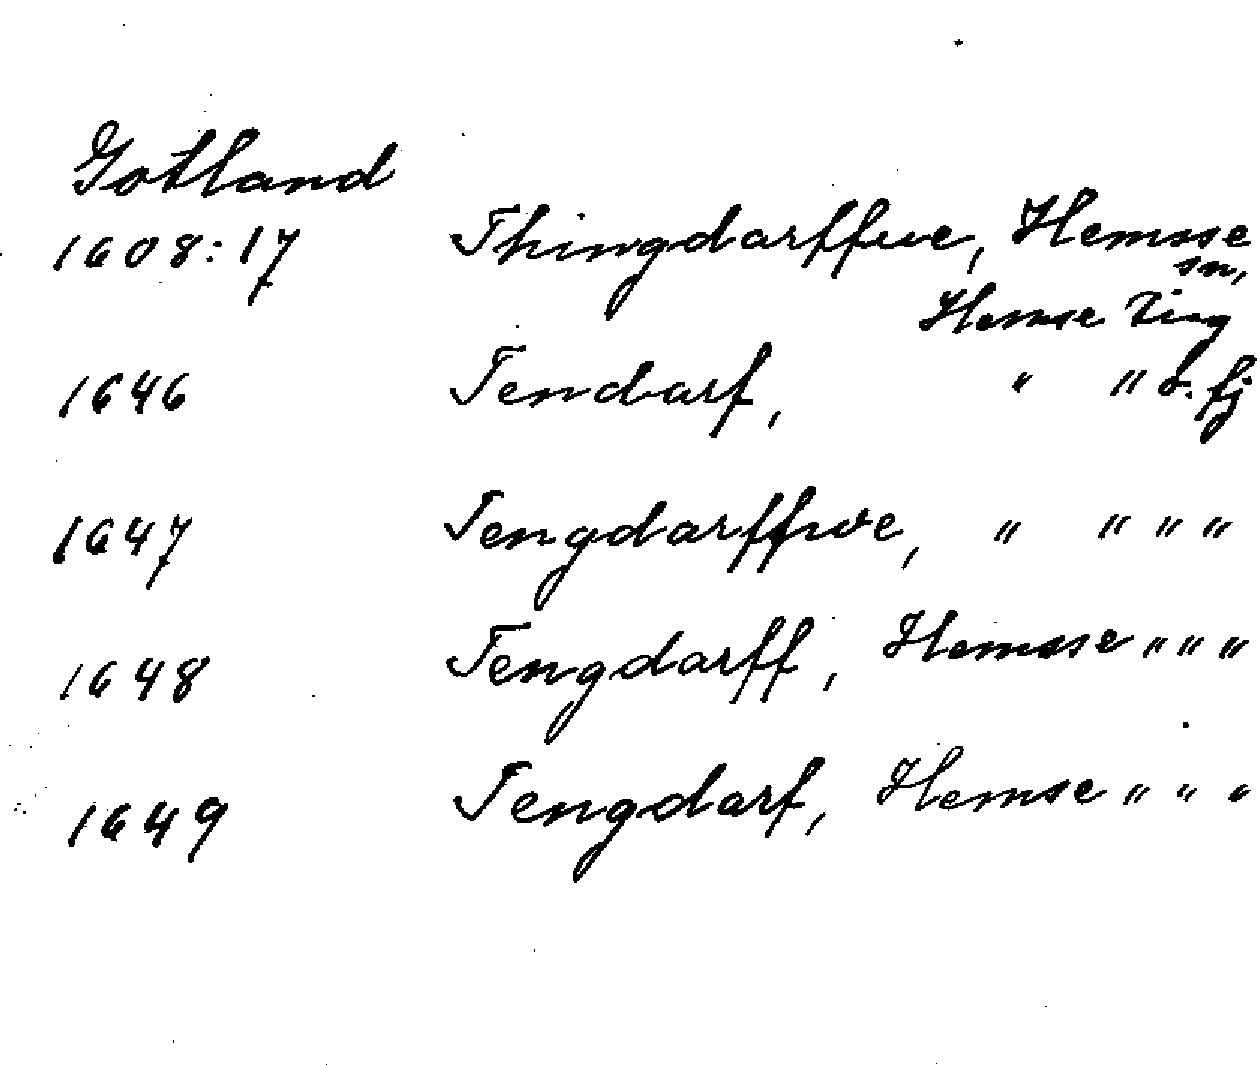 Gotland
1608:17 Thingdarffwe, Hemsse
sn,
Hemse ting
1646 Tendarf, " " o. fj
1647 Tengdarffwe, " " " "
1648 Tengdarff, Hemsse " " "
1649 Tengdarf, Hemse " " "